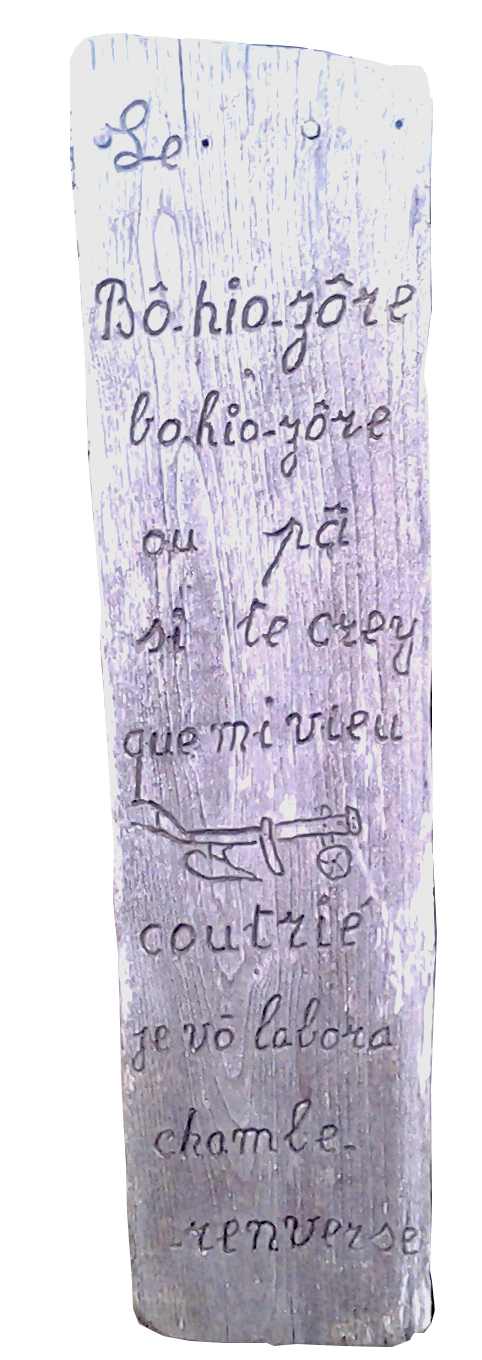 Le
Bô-hio-zôre
bo-hio-zôre
ou pâ
si te crey
que mi vieu
coutrié
je vô labora
chamle-
-renverse